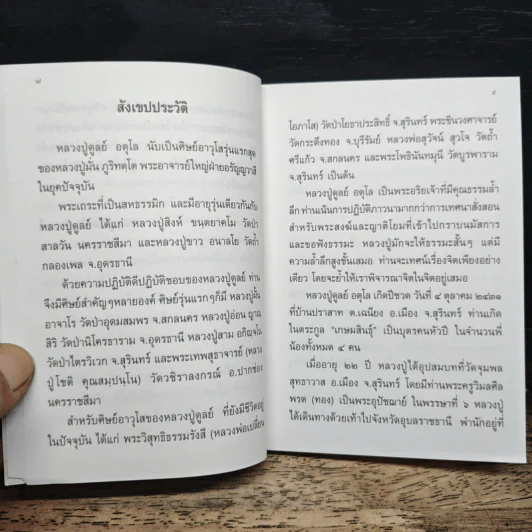 ๘
สังเขปประวัติ
หลวงปู่ดูลย์ อตุโล นับเป็นศิษย์อาวุโสรุ่นแรกสุด
ของหลวงปู่มั่น ภูริทตฺโต พระอาจารย์ใหญ่ฝ่ายอรัญญวาสี
ในยุคปัจจุบัน
พระเถระที่เป็นสหธรรมิก และมีอายุรุ่นเดียวกันกับ
หลวงปู่ดูลย์ ได้แก่ หลวงปู่สิงห์ ขนฺตยาคโม วัดป่า
สาลวัน นครราชสีมา และหลวงปู่ขาว อนาลโย วัดถ้ำ
กลองเพล จ.อุดรธานี
ด้วยความปฏิบัติดีปฏิบัติชอบของหลวงปู่ดูลย์ ท่าน
จึงมีศิษย์สำคัญๆหลายองค์ ศิษย์รุ่นแรกๆก็มี หลวงปู่ฝั้น
อาจาโร วัดป่าอุดมสมพร จ.สกลนคร หลวงปู่อ่อน ญาณ
สิริ วัดป่านิโครธาราม จ.อุดรธานี หลวงปู่สาม อกิญฺจโน
วัดป่าไตรวิเวก จ.สุรินทร์ และพระเทพสุธาจารย์ (หลวง
ปู่โชติ คุณสมฺปนฺโน) วัดวชิราลงกรณ์ อ.ปากช่อง
นครราชสีมา
สำหรับศิษย์อาวุโสของหลวงปู่ดูลย์ ที่ยังมีชีวิตอยู่
ในปัจจุบัน ได้แก่ พระวิสุทธิธรรมรังสี (หลวงพ่อเปลี่ยน
๙
โอภาโส) วัดป่าโยธาประสิทธิ์ จ.สุรินทร์ พระชินวงศาจารย์
วัดกระดึงทอง จ.บุรีรัมย์ หลวงพ่อสุวัจน์ สุวโจ วัดถ้ำ
ศรีแก้ว จ.สกลนคร และพระโพธินันทมุนี วัดบูรพาราม
จ.สุรินทร์ เป็นต้น
หลวงปู่ดูลย์ อตุโล เป็นพระอริยเจ้าที่มีคุณธรรมล้ำ
ลึก ท่านเน้นการปฏิบัติภาวนามากกว่าการเทศนาสั่งสอน
สำหรับพระสงฆ์และญาติโยมที่เข้าไปกราบนมัสการ
และขอฟังธรรมะ หลวงปู่มักจะให้ธรรมะสั้นๆ แต่มี
ความล้ำลึกสูงชั้นเสมอ ท่านจะเทศน์เรื่องจิตเพียงอย่าง
เดียว โดยจะย้ำให้เราพิจารณาจิตในจิตอยู่เสมอ
หลวงปู่ดูลย์ อตุโล เกิดปีชวด วันที่ ๔ ตุลาคม ๒๔๓๑
ที่บ้านปราสาท ต.เฉนียง อ.เมือง จ.สุรินทร์ ท่านเกิด
ในตระกูล "เกษมสินธุ์" เป็นบุตรคนหัวปี ในจำนวนพี่
น้องทั้งหมด ๔ คน
เมื่ออายุ ๒๒ ปี หลวงปู่ได้อุปสมบทที่วัดจุมพล
สุทธาวาส อ.เมือง จ.สุรินทร์ โดยมีท่านพระครูวิมลศีล
พรต (ทอง) เป็นพระอุปัชฌาย์ ในพรรษาที่ ๖ หลวงปู่
ได้เดินทางด้วยเท้าไปจังหวัดอุบลราชธานี พำนักอยู่ที่